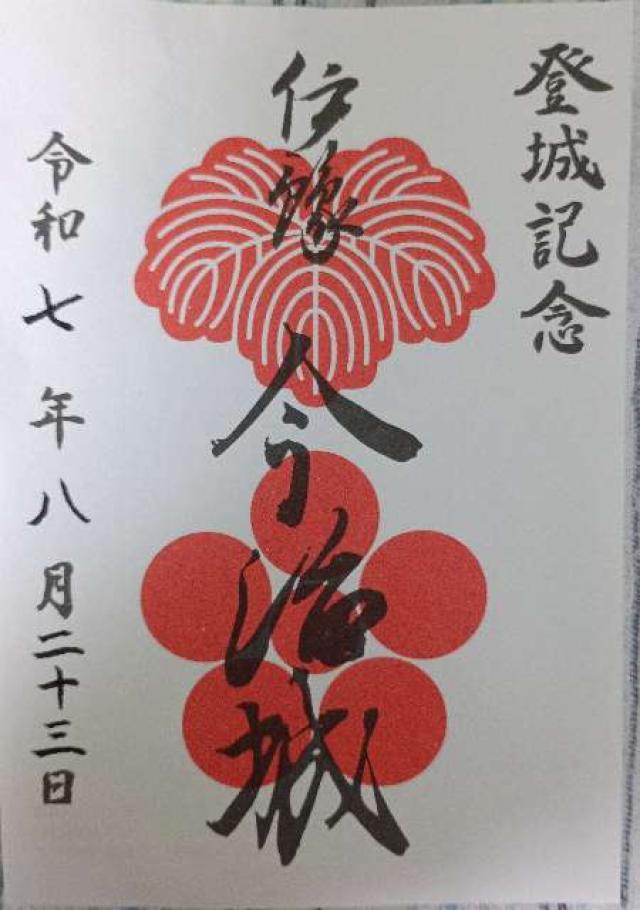 登城記念
伊豫
今治城
令和七年八月二十三日